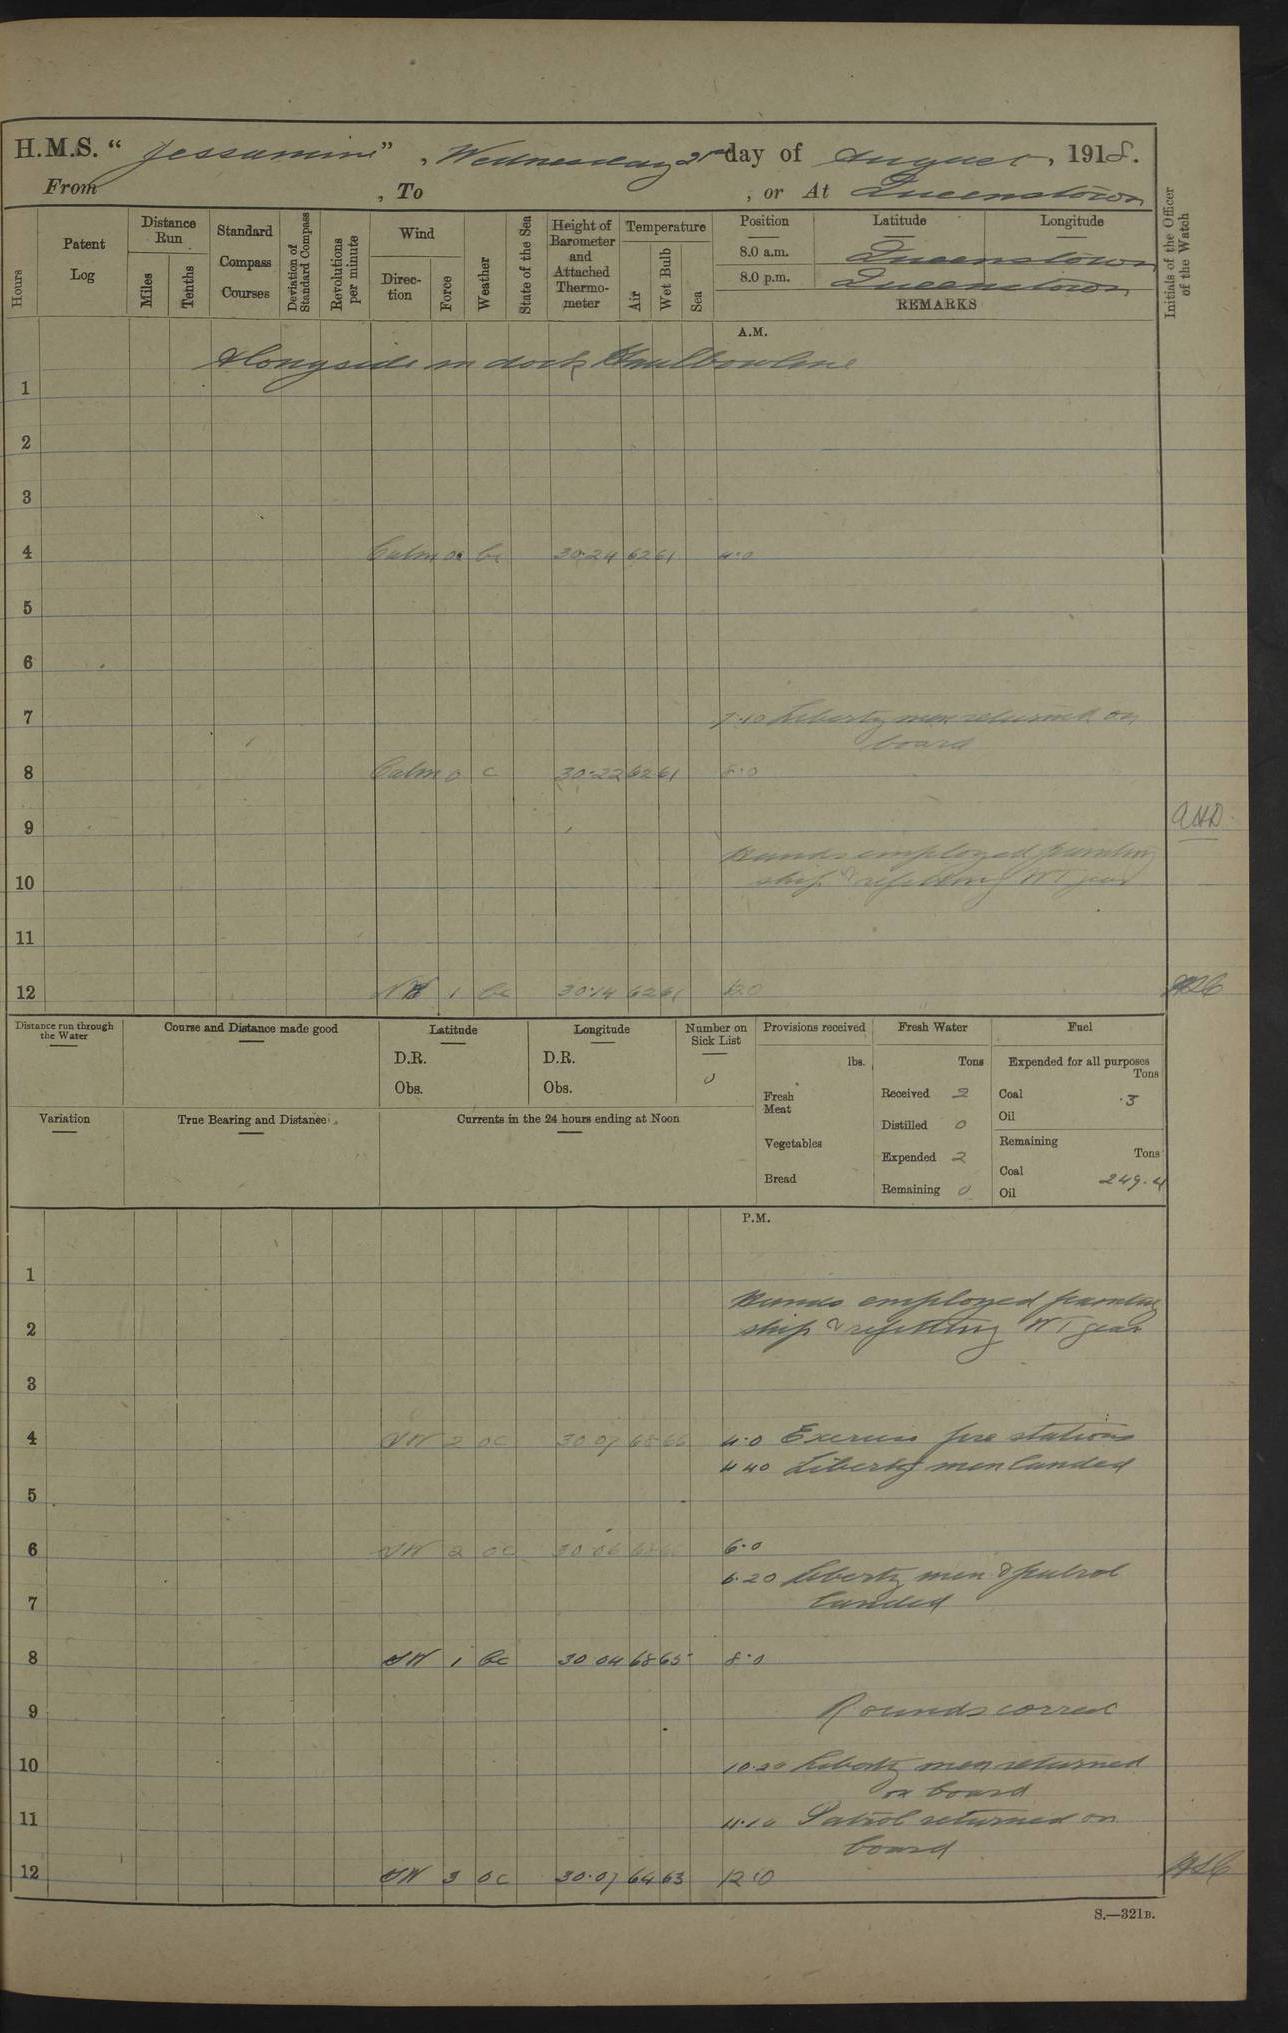 H.M.S. “Jessamine”, Wednesday 21st day of August, 1918.
From , To , or At Queenstown
Hours
Patent Log
Distance Run
Miles
Tenths
Standard Compass Courses
Deviation of Standard Compass
Revolutions per minute
Wind
Direction
Force
Weather
State of the Sea
Height of Barometer and Attached Thermometer
Temperature
Air
Wet Bulb
Sea
Position Latitude Longitude
8.0 a.m. Queenstown
8.0 p.m. Queenstown
REMARKS
Initials of the Officer of the Watch
A.M.
Alongside in dock Haulbowline
1
2
3
4 Calm 0 bc 30.24 62 61 4.0
5
6
7 7.10 Liberty men returned on
board
8 Calm 0 c 30.22 62 61 8.0
9
Hands employed painting
10 ship & refitting W T gear
11
12 1 bc 30.14 62 61 12.0
Distance run through the Water
Course and Distance made good
Latitude
D.R.
Obs.
Longitude
D.R.
Obs.
Number on Sick List
0
Provisions received
lbs.
Fresh Meat
Vegetables
Bread
Fresh Water
Tons
Received 2
Distilled 0
Expended 2
Remaining 0
Fuel
Expended for all purposes
Tons
Coal .3
Oil
Remaining
Tons
Coal 249.4
Oil
Variation
True Bearing and Distance
Currents in the 24 hours ending at Noon
P.M.
1
Hands employed painting
2 ship & refitting W T gear
3
4 SW 2 oc 30.07 68 66 4.0 Exercise fire stations
4.40 Liberty men landed
5
6 SW 2 oc 30.06 6.0
6.20 Liberty men & patrol
7 landed
8 SW 1 bc 30.04 68 65 8.0
9 Rounds correct
10 10.20 Liberty men returned
on board
11 11.10 Patrol returned on
board
12 SW 3 oc 30.07 64 63 12.0
S.—321B.